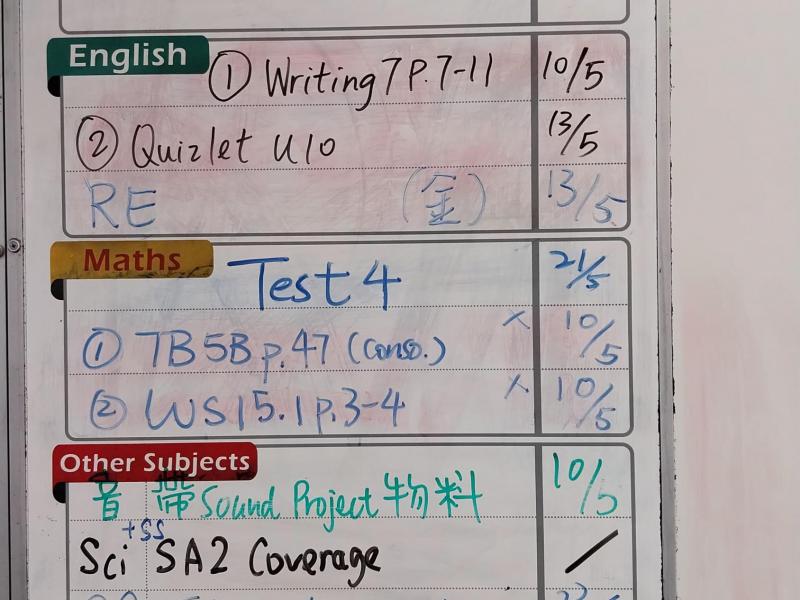 English
① Writing 7 P.7-11 10/5
② Quizlet U10 13/5
RE (金) 13/5
Maths
Test 4 21/5
① TB5B p.47 (conso.) × 10/5
② WS15.1 p.3-4 × 10/5
Other Subjects
音 带 Sound Project 物料 10/5
+SS
Sci SA2 Coverage /